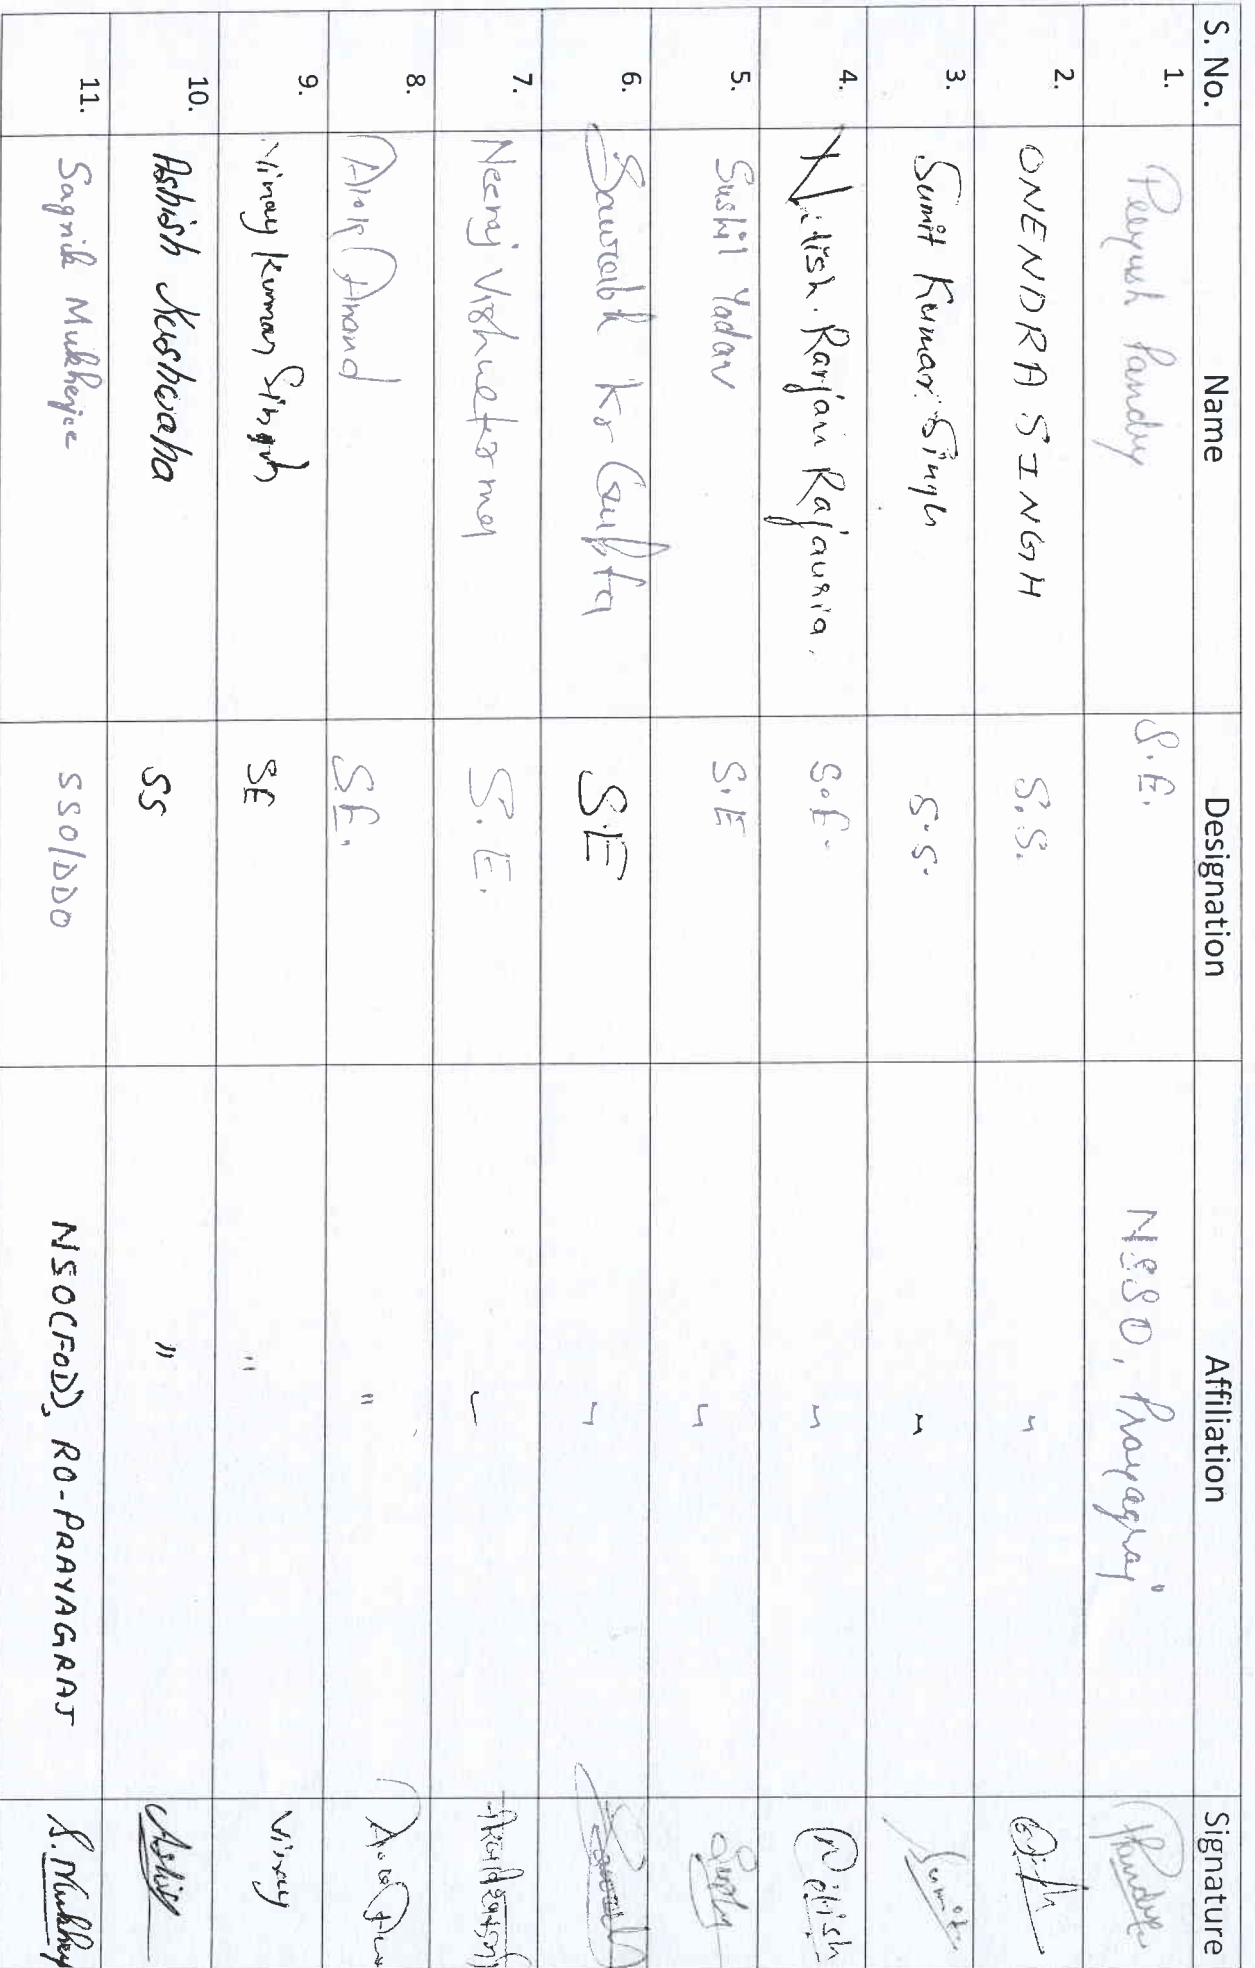 S. No. Name Designation Affiliation Signature
1. Peeyush Pandey S.E. NSSO, Prayagraj Pandey
2. ONENDRA SINGH S.S. "
3. Sumit Kumar Singh S.S. " Sumit
4. Nitish Ranjan Rajauria. S.E. " Nitish
5. Sushil Yadav S.E "
6. Saurabh Kr Gupta S.E " Saurabh
7. Neeraj Vishwakarma S.E. "
8. Alok Anand S.E. "
9. Vinay Kumar Singh SE " Vinay
10. Ashish Kushwaha SS " Ashish
11. Sagnik Mukherjee SSO/DDO NSO(FOD), RO-PRAYAGRAJ S. Mukherjee